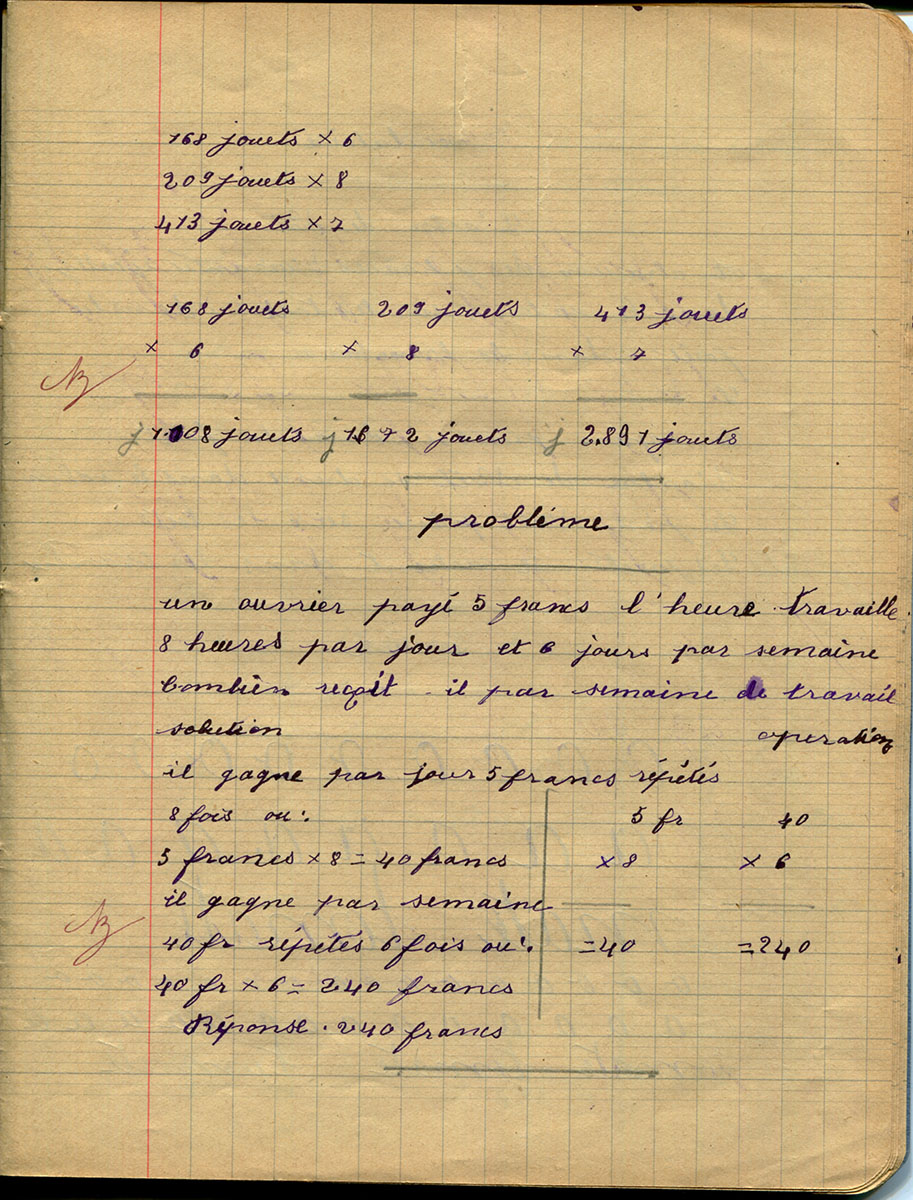 168 jouets × 6
209 jouets × 8
413 jouets × 7
168 jouets 209 jouets 413 jouets
× 6 × 8 × 7
j 1.008 jouets j 1.672 jouets j 2.891 jouets
probléme
un ouvrier payé 5 francs l'heure travaille
8 heures par jour et 6 jours par semaine
combien reçoit-il par semaine de travail
solution operation
il gagne par jour 5 francs répétés
8 fois ou: 5 fr 40
5 francs × 8 = 40 francs × 8 × 6
il gagne par semaine
40 fr répétés 6 fois ou: =40 =240
40 fr × 6 = 240 francs
Réponse. 240 francs